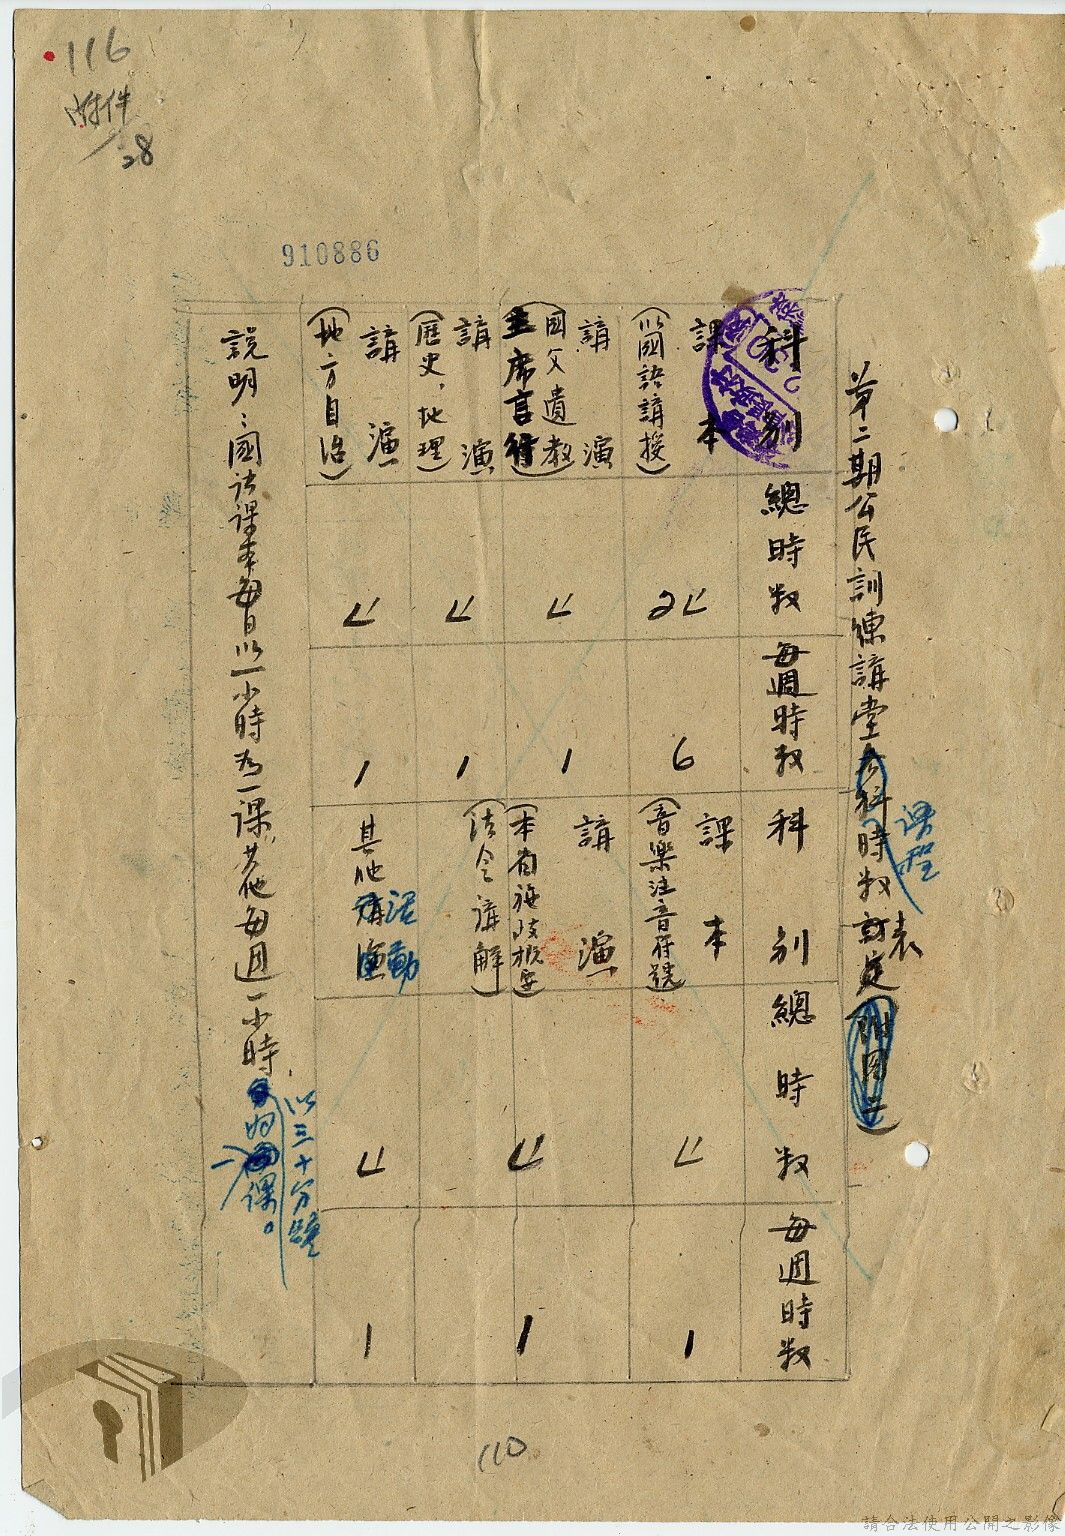 116
附件
28
910886
第二期公民訓練講堂各科時数訂定表(附因二)
課程
科別
總時数
每週時数
科別
總時数
每週時数
課本
(以國語講授)
24
6
課本
(音樂注音符號)
4
1
講演
(國父遺教
主席言行)
4
1
講演
(本省施政概要)
(法令講解)
4
1
講演
(歷史、地理)
4
1
講演
(地方自治)
4
1
其他講演
活動
4
1
說明：國語課本每日以一小時為一課，其他每週一小時，
以三十分鐘
為一課。
110
請合法使用公開之影像